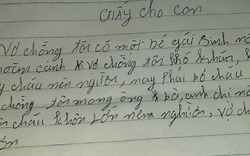 Giấy cho con
Vợ chồng tôi có một bé gái sinh
hoàn cảnh vợ chồng tôi khó khăn,
cháu nên người, nay phải bỏ cháu
chồng tôi mong ông bà, anh chị nào
cháu khôn lớn nên người, vợ ch
ơn